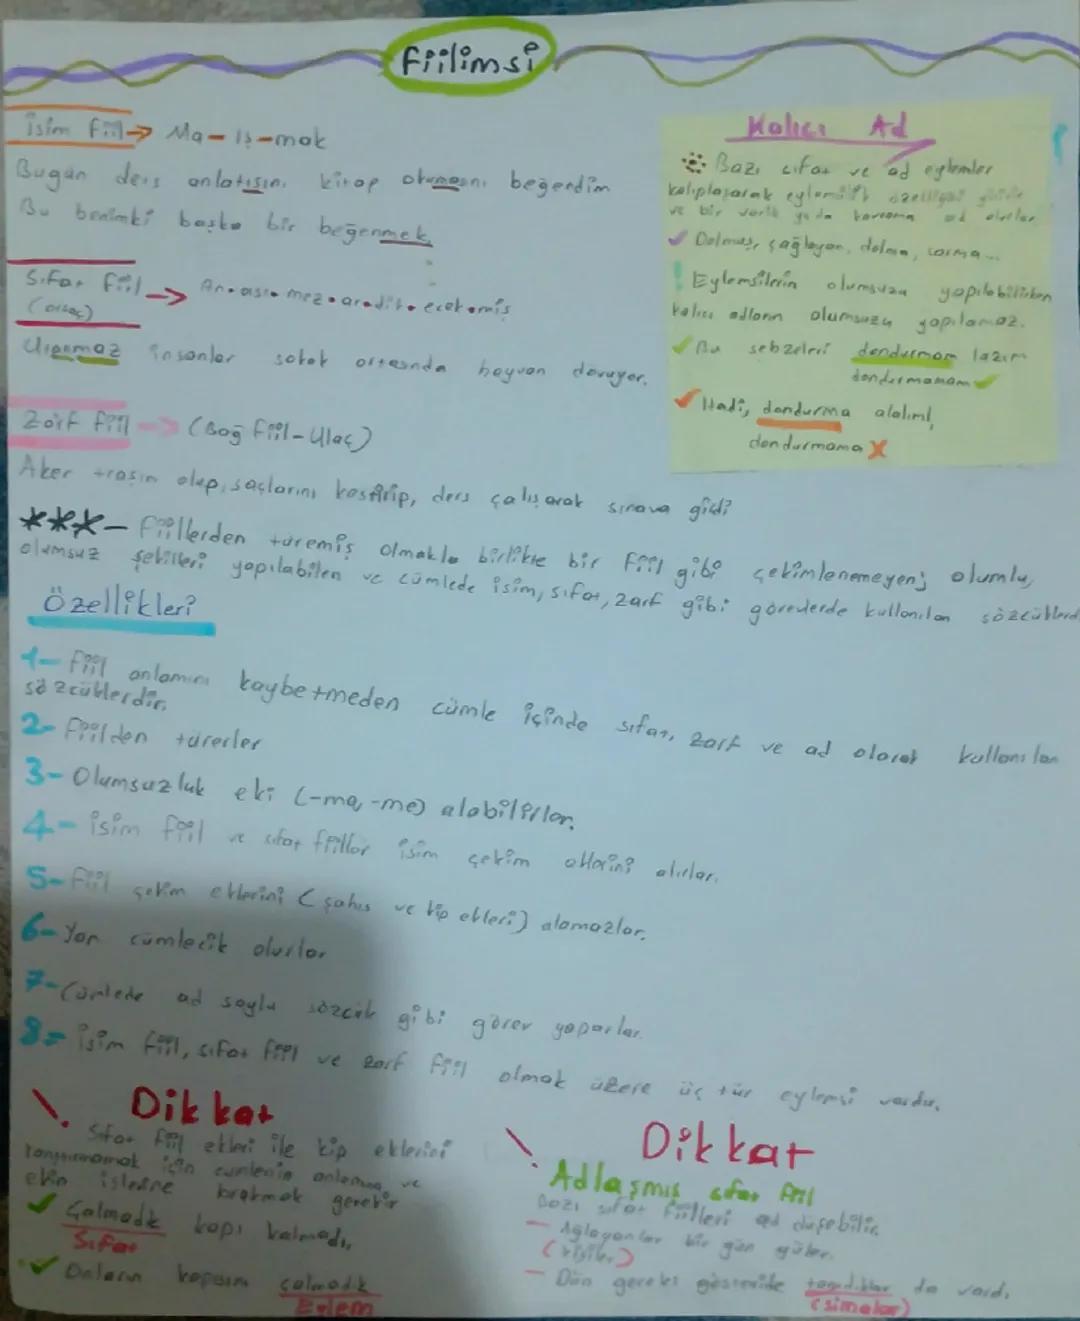 Fiilimsi
isim fiil → Ma-ış-mak
Bugün ders anlatışını kitap okumasını beğendim
Bu benimki başka bir beğenmek.
Sıfat fiil → An.ası.mez.ar.dik.ecek.miş
(ortaç)
Utanmaz insanlar sokak ortasında hayvan dövüyor.
Zarf fiil → (Bağ fiil-Ulaç)
Aker traşın olup, saçlarını kestirip, ders çalışarak sınava gitdi
***- Fiillerden türemiş olmakla birlikte bir fiil gibi çekimlenemeyen; olumlu,
olumsuz şekilleri yapılabilen ve cümlede isim, sıfat, zarf gibi görevlerde kullanılan sözcüklerd
Kalıcı Ad
Bazı sıfat ve ad eylemler
kalıplaşarak eylemsilik özelliğini yitirir
ve bir varlık ya da kavrama ad olurlar.
✓ Dolmuş, çağlayan, dolma, sarma...
! Eylemsilerin olumsuzu yapılabilirken
kalıcı adların olumsuzu yapılamaz.
✓ Bu sebzeleri dondurmam lazım
dondurmamam ✓
✓ Hadi, dondurma alalım!
dondurmama X
Özellikleri
1- Fiil anlamını kaybetmeden cümle içinde sıfat, zarf ve ad olarak kullanılan
sözcüklerdir.
2- Fiilden türerler
3- Olumsuzluk eki (-ma, -me) alabilirler.
4- isim fiil ve sıfat fiiller isim çekim eklerini alırlar.
5- Fiil çekim eklerini (şahıs ve kip ekleri) alamazlar.
6- Yan cümlecik olurlar
7- Cümlede ad soylu sözcük gibi görev yaparlar.
8- isim fiil, sıfat fiil ve zarf fiil olmak üzere üç tür eylemsi vardır.
! Dikkat
Sıfat fiil ekleri ile kip eklerini
karıştırmamak için cümlenin anlamına ve
ekin işlevine bakmak gerekir
✓ Çalmadık kapı kalmadı.
Sıfat
✓ Onların kapısını çalmadık
Eylem
! Dikkat
Adlaşmış sıfat fiil
Bazı sıfat fiilleri ad düşebilir.
- Ağlayanlar bir gün güler.
(kişiler)
- Dün geceki gösteride tanıdıklar da vardı.
(simalar)